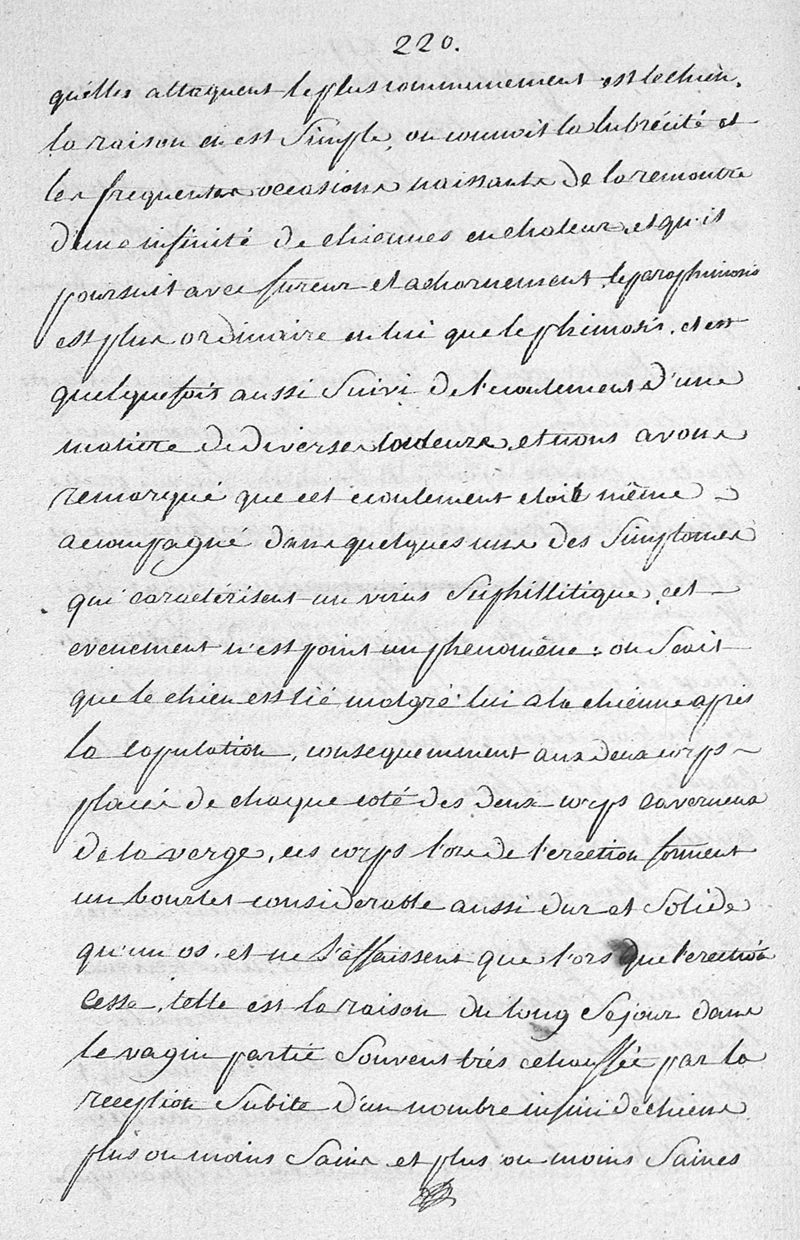 220.
qu'elles attaquent le plus communement est le chien,
la raison en est Simple, on connoit la lubrécité et
les frequentes occasions naissants de la rencontre
d'une infinité de chiennes en chaleur, et qu'il
poursuit avec fureur et acharnement, le paraphimosis
est plus ordinaire en lui que le phimosis, et est
quelquefois aussi Suivi de l'ecoulement d'une
matiere de diverses couleurs, et nous avons
remarqué que cet ecoulement etoit même
acompagné dans quelques uns des Simptomes
qui caractérisent un virus Siphillitique, cet
evenement n'est point un phenomène : on Scait
que le chien est lié malgré lui a la chienne après
la copulation, consequemment aux deux corps
placés de chaque coté des deux corps caverneux
de la verge, ces corps l'ors de l'erection forment
un bourlet considerable aussi dur et Solide
qu'un os, et ne S'affaissent que l'ors que l'erection
Cesse, telle est la raison du long Sejour dans
le vagin partie Souvent trés echauffée par la
reception Subite d'un nombre infini de chiens
plus ou moins Sains et plus ou moins Saines